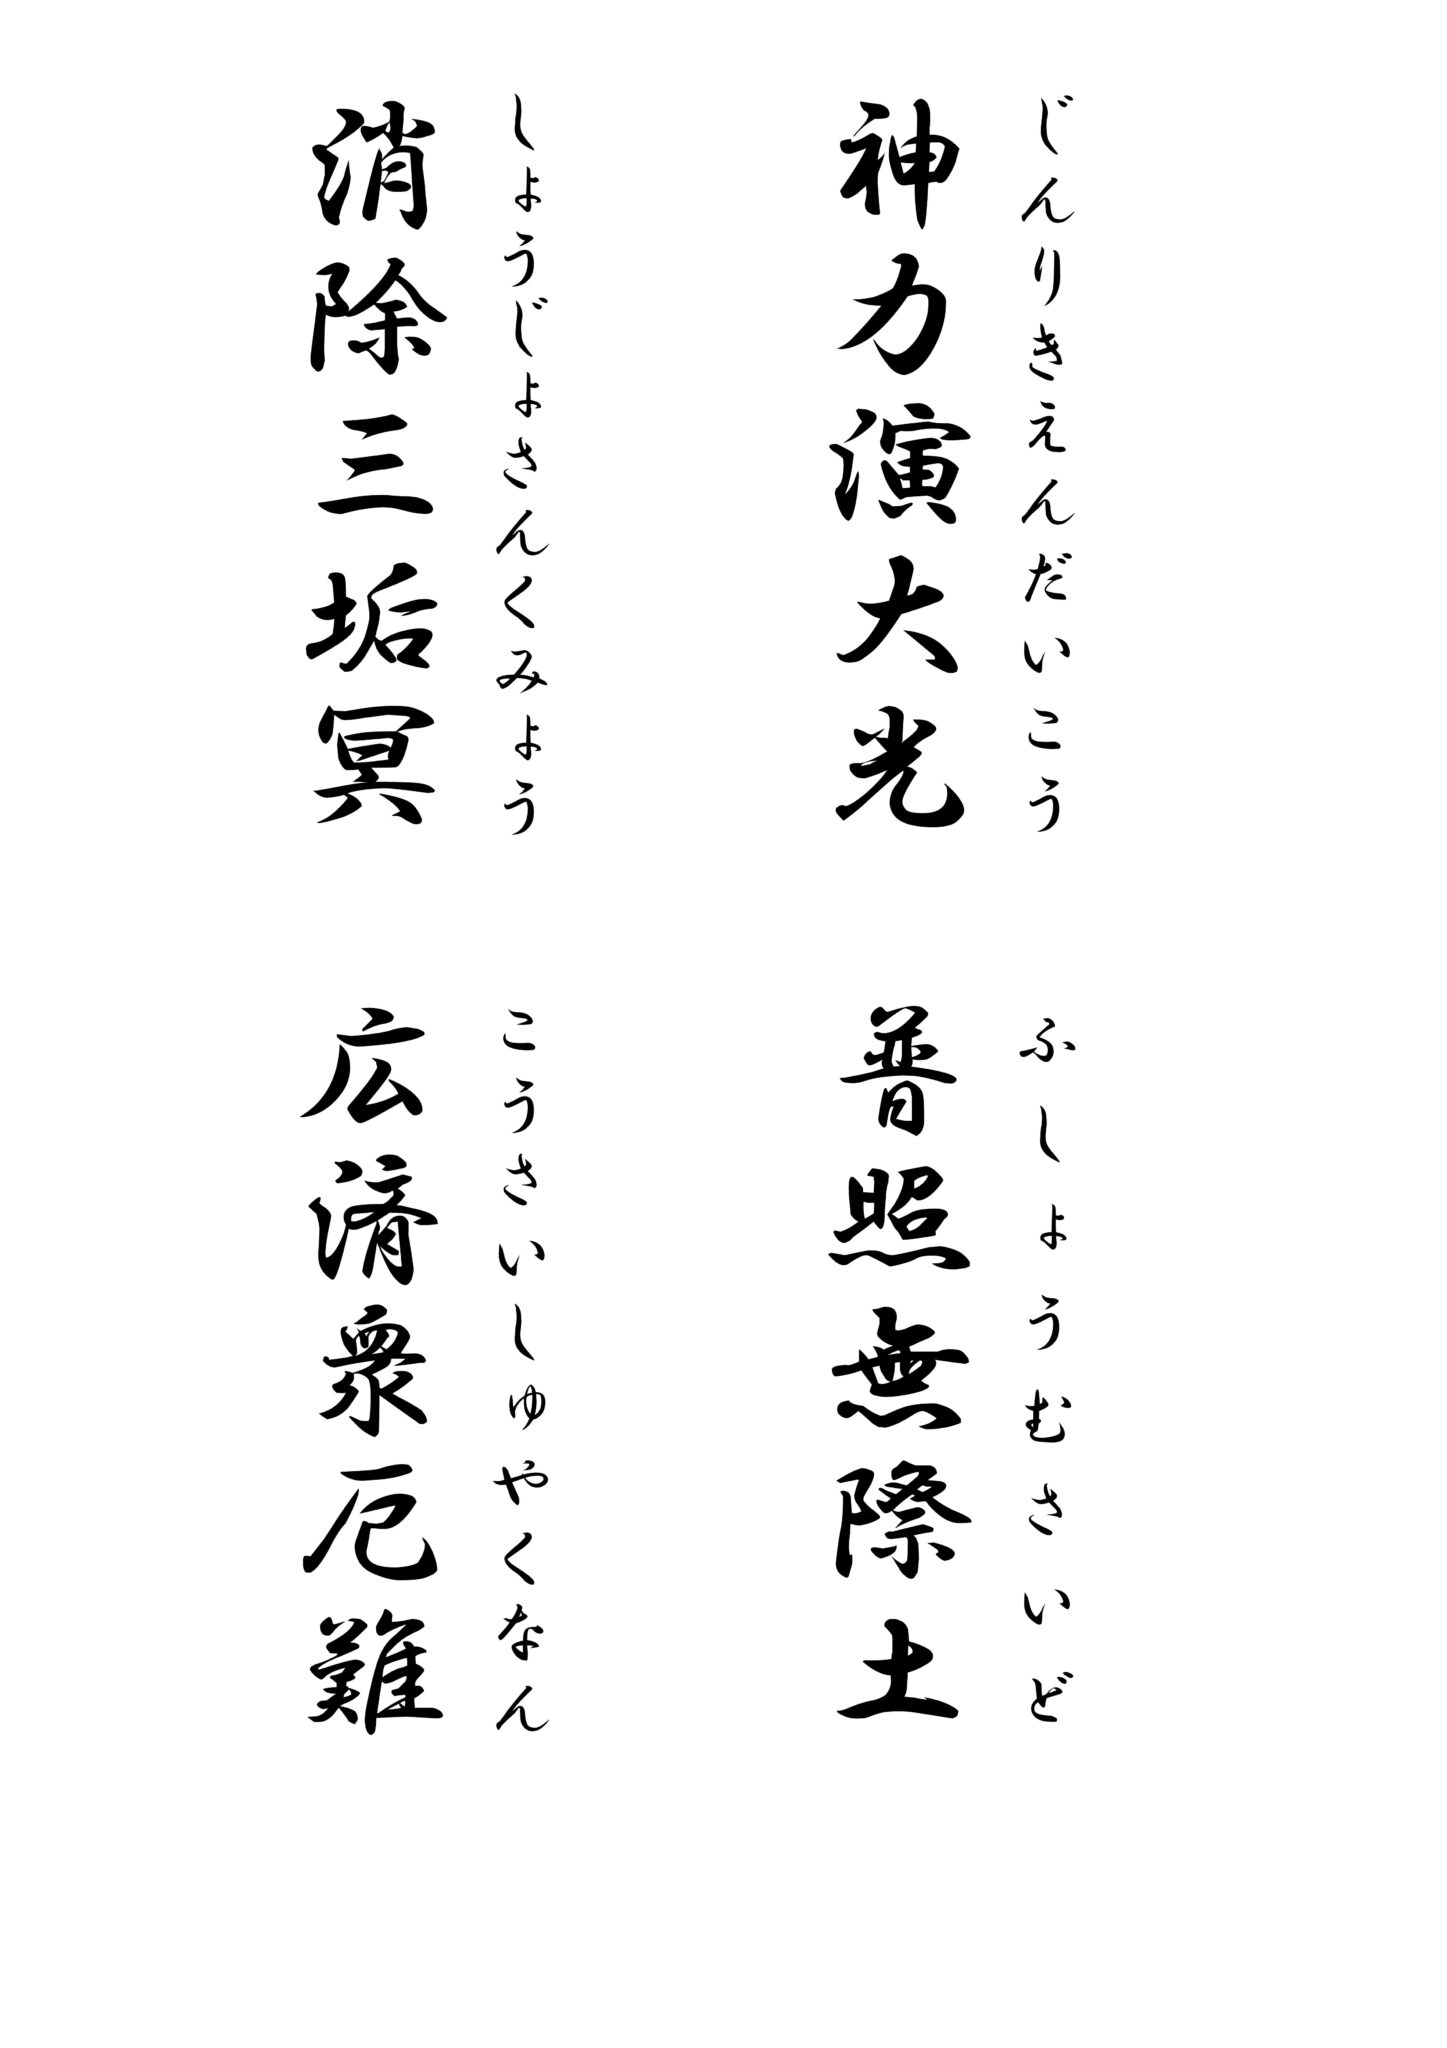 じんりきえんだいこう
神力演大光
ふしょうむさいど
普照無際土
しょうじょさんくみょう
消除三垢冥
こうさいしゅやくなん
広済衆厄難